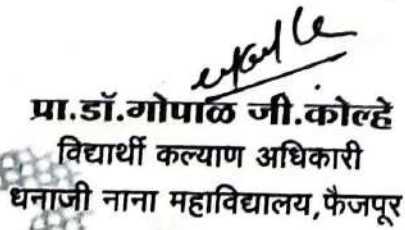 प्रा.डॉ.गोपाळ जी.कोल्हे
विद्यार्थी कल्याण अधिकारी
धनाजी नाना महाविद्यालय,फैजपूर